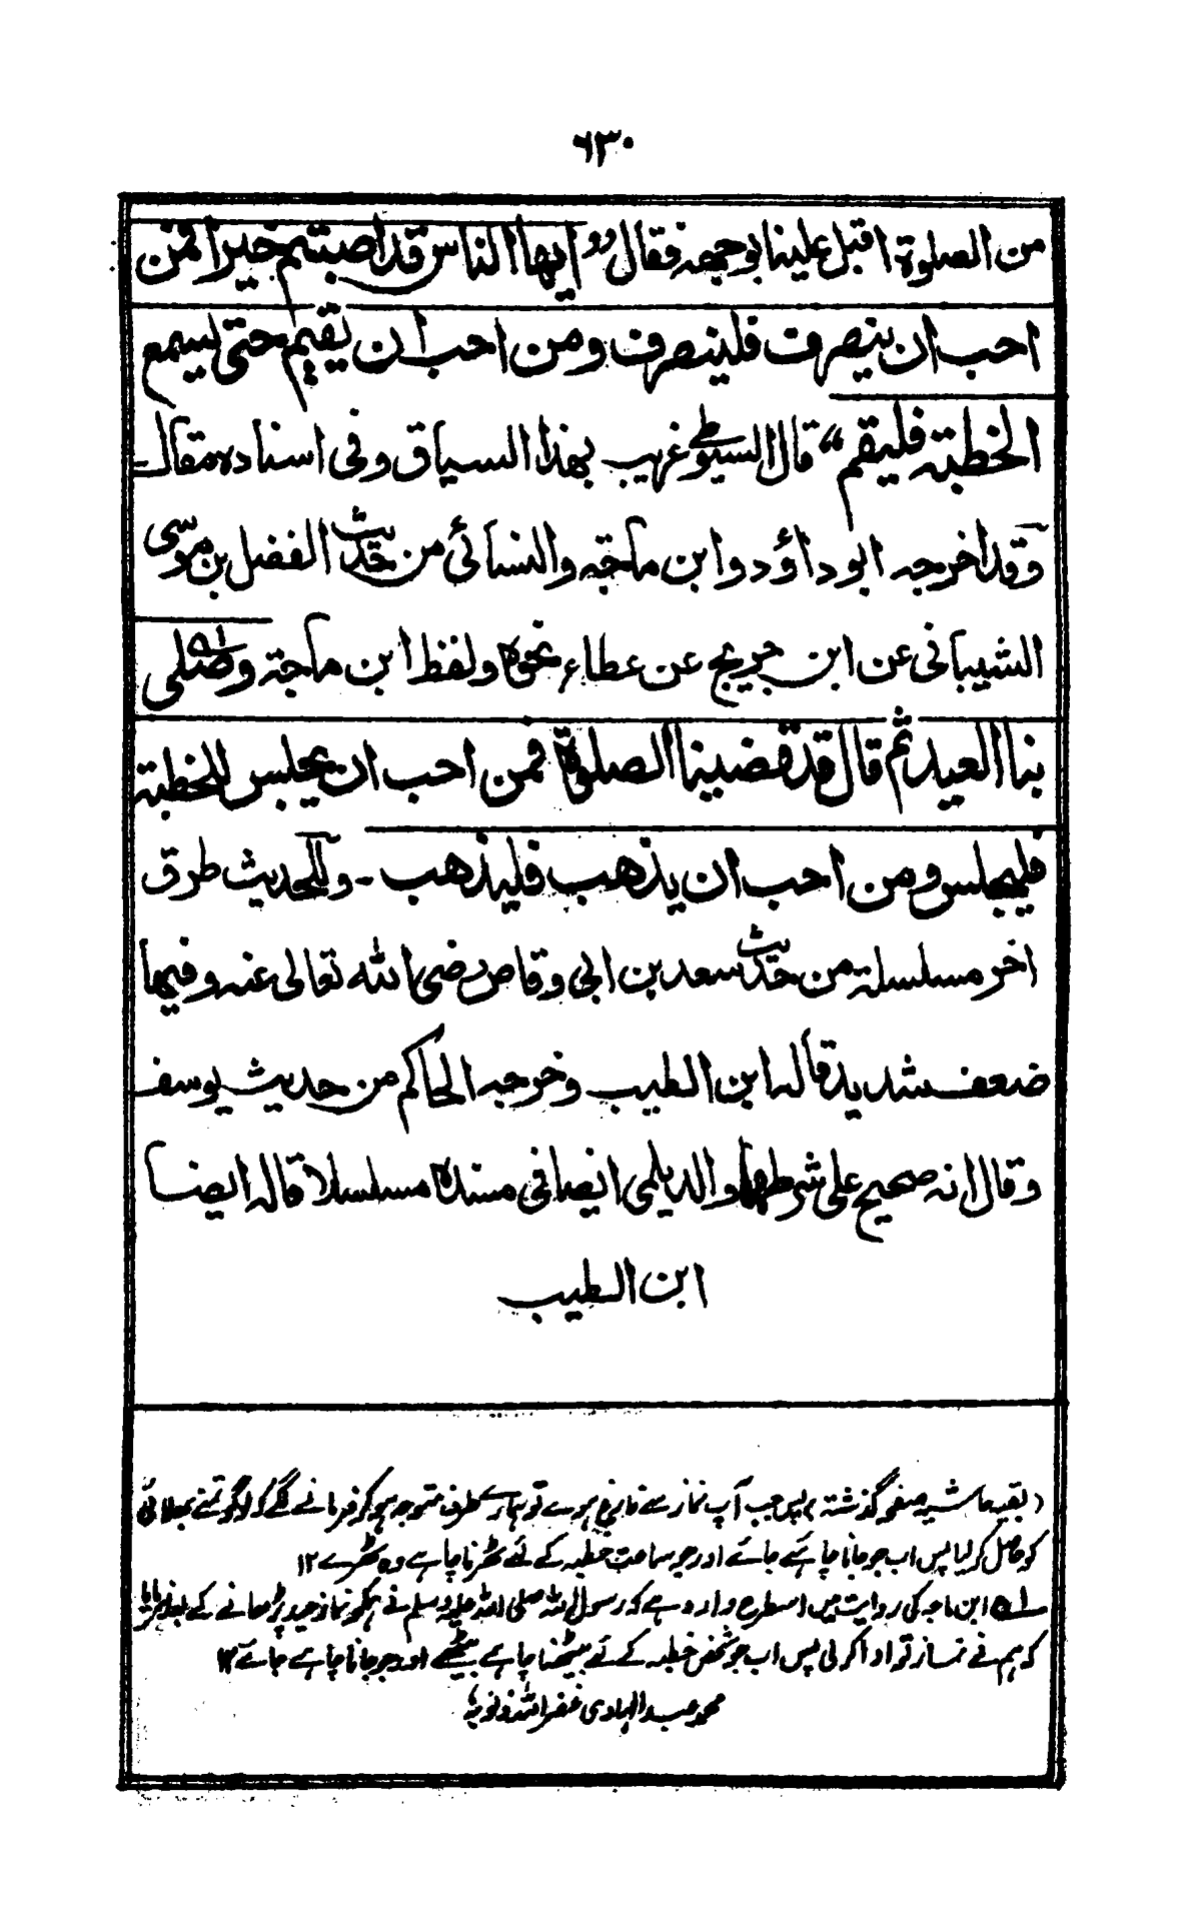 ۶۳۰
من الصلوة اقبل علينا بوجهه فقال ”ايها الناس قد اصبتم خيرا فمن
احب ان ينصرف فلينصرف ومن احب ان يقيم حتى يسمع
الخطبة فليقم“ قال السيوطي غريب بهذا السياق وفي اسناده مقال
وقد اخرجه ابو داؤد وابن ماجه والنسائي من حديث الفضل بن موسى
الشيباني عن ابن جريج عن عطاء نحوه ولفظ ابن ماجة وصلى
بنا العيد ثم قال قد قضينا الصلوة فمن احب ان يجلس للخطبة
فليجلس ومن احب ان يذهب فليذهب ـ وللحديث طرق
اخر مسلسلة من حديث سعد بن ابي وقاص رضى الله تعالى عنه وفيها
ضعف شديد قاله ابن الطيب وخرجه الحاكم من حديث يوسف
وقال انه صحيح على شرطهما والديلمي ايضا في مسنده مسلسلا قاله ايضا
ابن الطيب
(بقیہ حاشیہ صفحہ گذشتہ) پس جب آپ نماز سے فارغ ہوے تو ہمارے طرف متوجہ ہو کر فرمانے لگے کہ لوگو تمنے بھلائی
کو حاصل کر لیا پس اب جو جانا چاہئے جائے اور جو سماعت خطبہ کے لئے ٹھرنا چاہے وہ ٹھرے ۱۲
۱ه ابن ماجہ کی روایت میں اسطرح وارد ہے کہ رسول اللہ صلی اللہ علیہ وسلم نے ہمکو نماز عید پڑھانے کے بعد فرمایا
کہ ہم نے نماز تو ادا کر لی پس اب جو شخص خطبہ کے لئے بیٹھنا چاہے بیٹھے اور جو جانا چاہے جائے ۱۲
محمد عبد الہادی غفر اللہ ذنوبہ